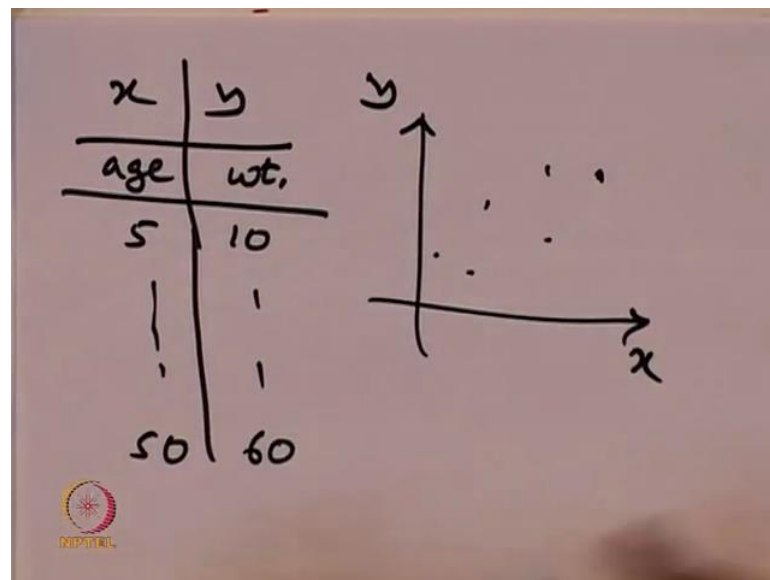 x y
age wt.
5 10
50 60
y
x
NPTEL